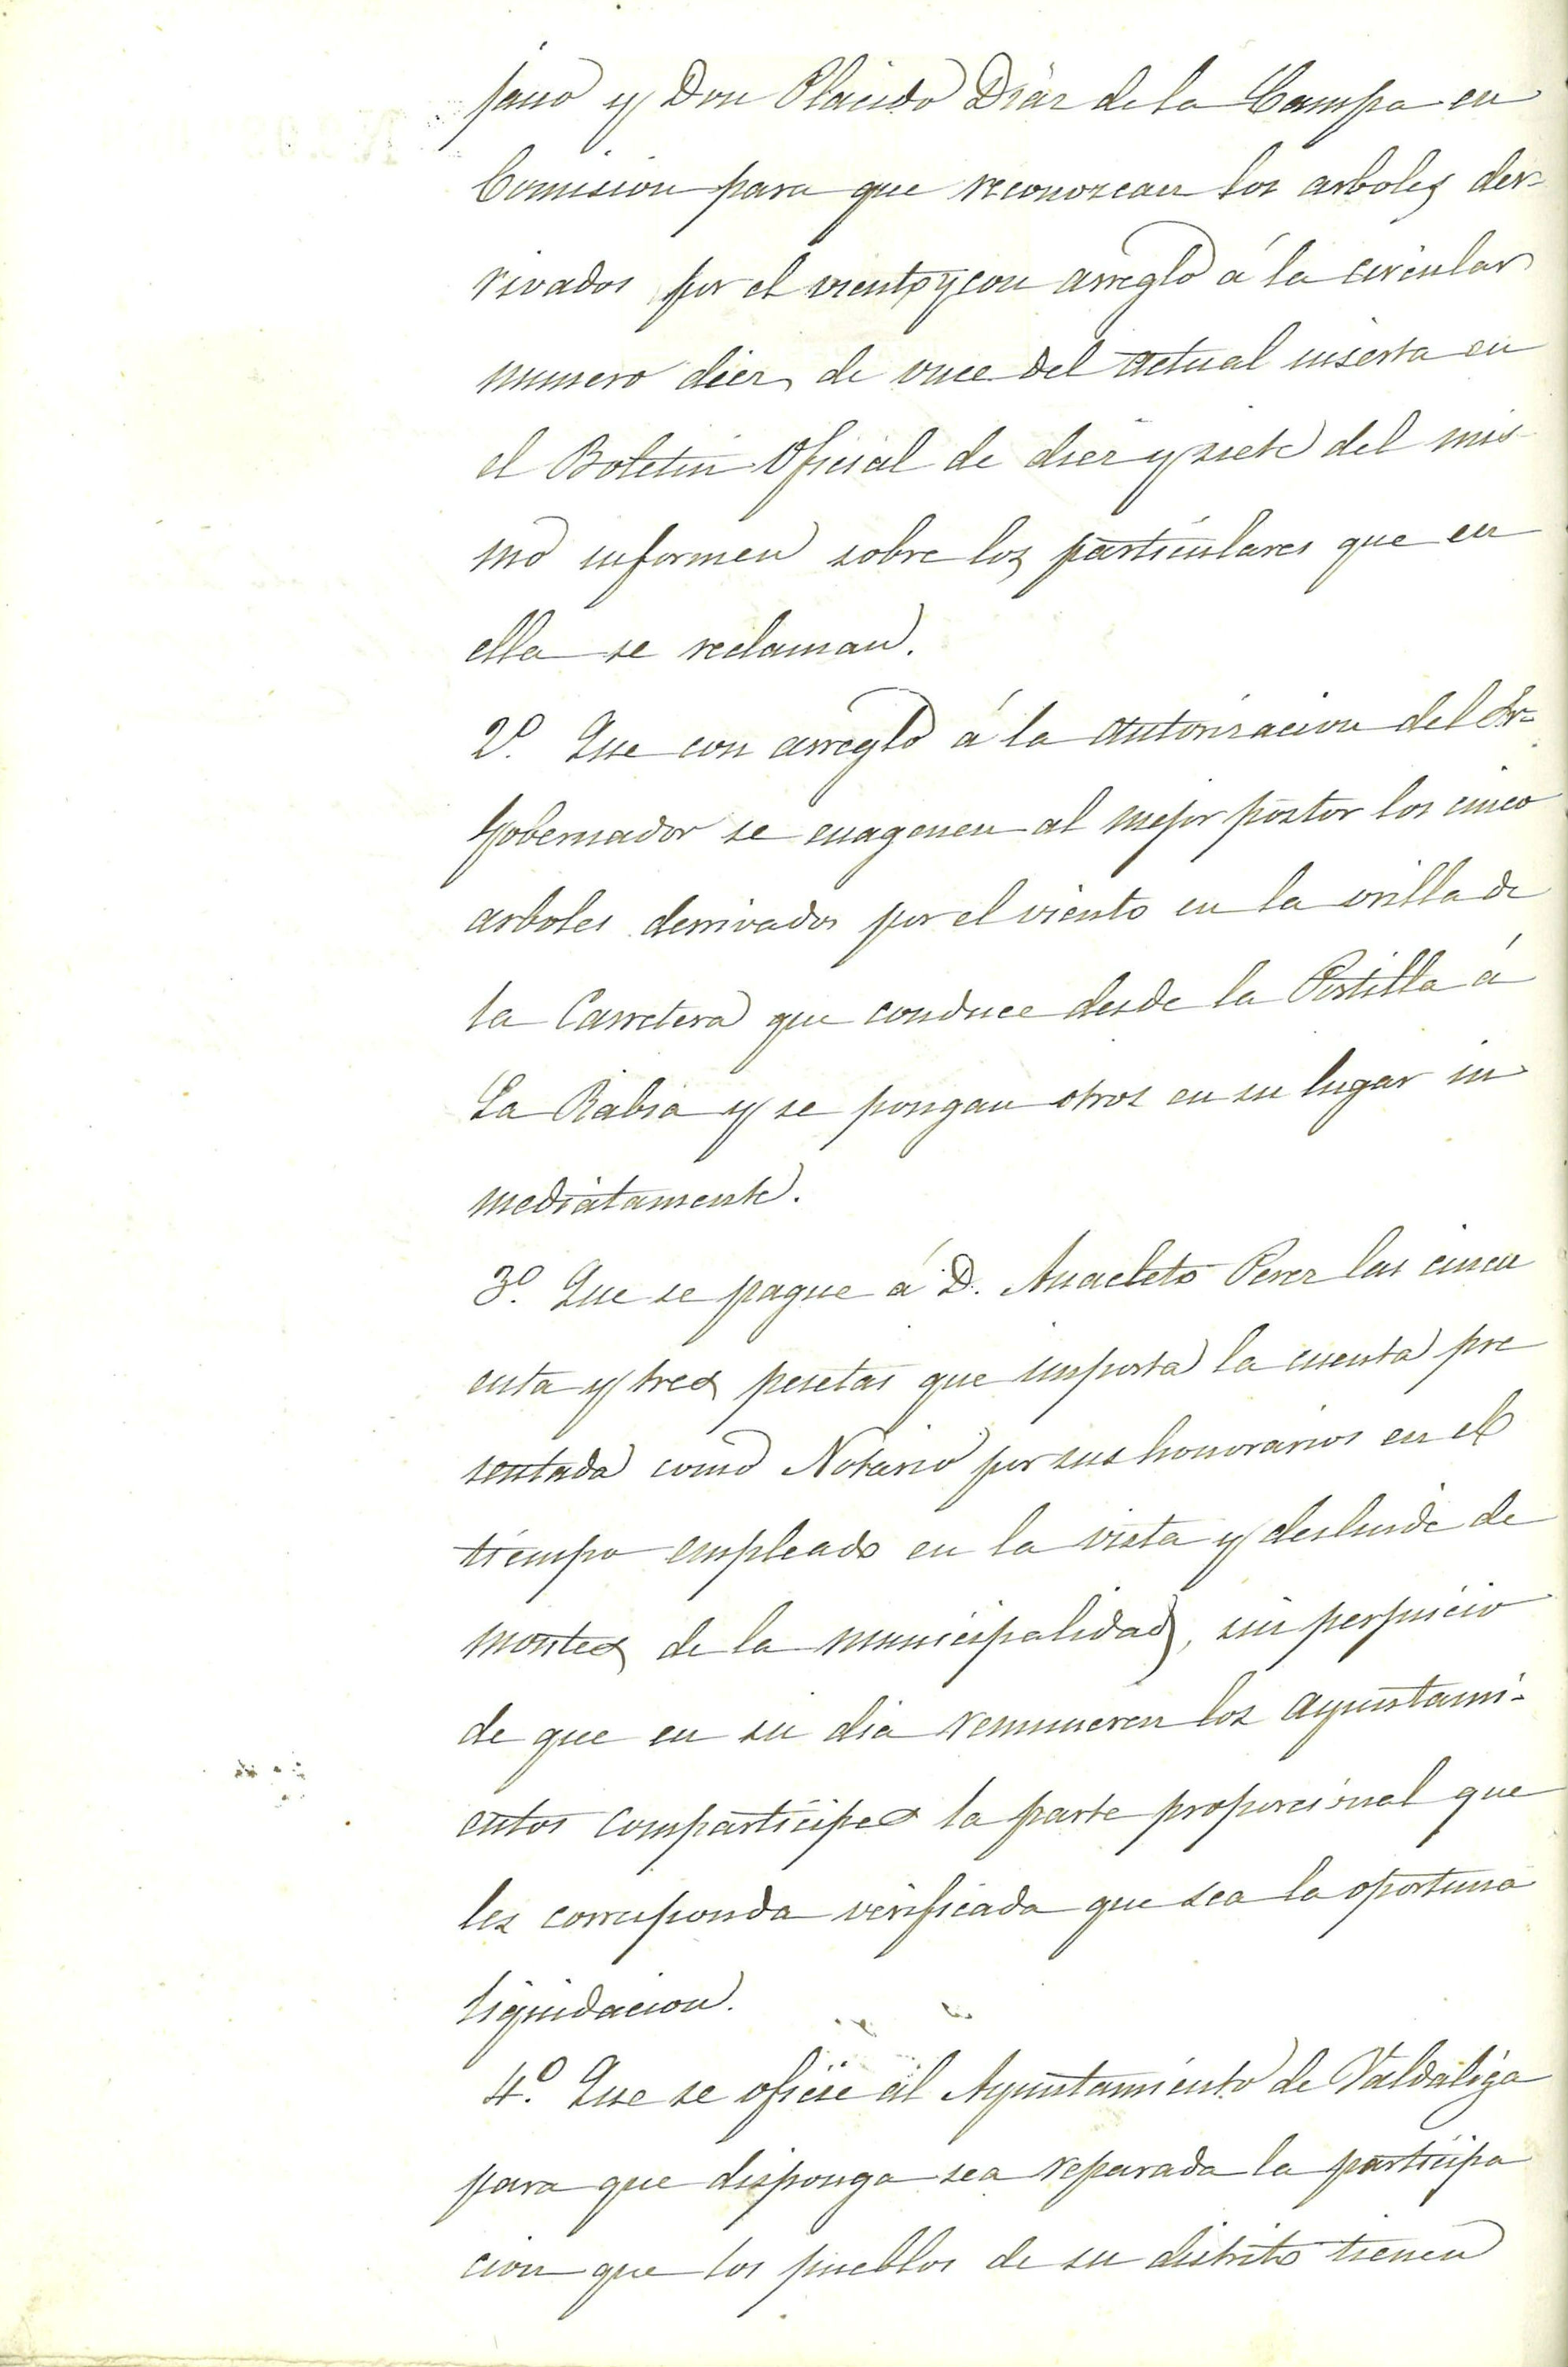 jano y Don Placido Diaz de la Campa en
Comision para que reconozcan los arboles der-
rivados por el viento y con arreglo á la circular
numero diez de once del actual inserta en
el Boletin Oficial de diez y siete del mis
mo informen sobre los particulares que en
ella se reclaman.
2º. Que con arreglo á la autorizacion del Sr.
Gobernador se enagenen al mejor postor los cinco
arboles derrivados por el viento en la orilla de
la Carretera que conduce desde la Portilla á
La Rabia y se pongan otros en su lugar in
mediatamente.
3º. Que se pague á D. Anacleto Perez las cincu
enta y tres pesetas que importa la cuenta pre
sentada como Notario por sus honorarios en el
tiempo empleado en la vista y deslinde de
montes de la municipalidad, sin perjuicio
de que en su dia remuneren los ayuntami-
entos comparticipes la parte proporcional que
les corresponda verificada que sea la oportuna
liquidacion.
4º. Que se oficie al Ayuntamiento de Valdaliga
para que disponga sea reparada la participa
cion que los pueblos de su distrito tienen